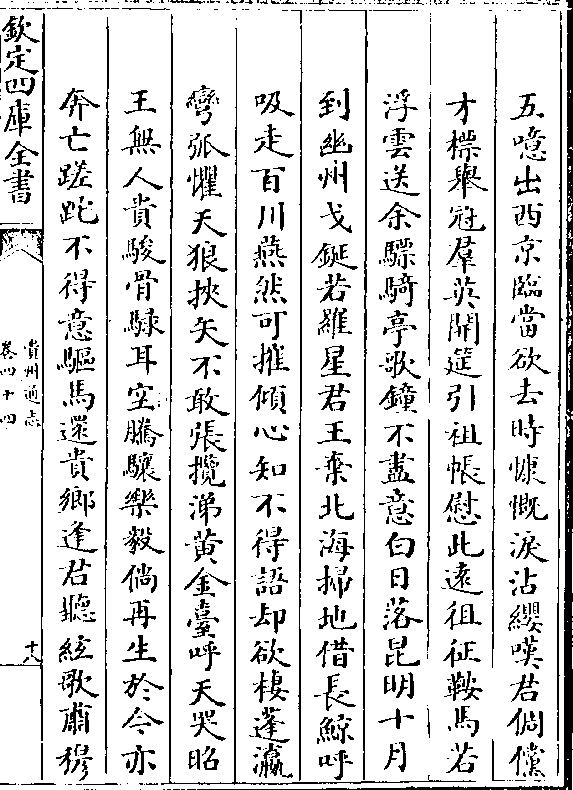 五噫出西京臨當欲去時慷慨淚沾纓嘆君倜儻
才標舉冠羣英開筵引祖帳慰此遠徂征鞍馬若
浮雲送余驃騎亭歌鐘不盡意白日落昆明十月
到幽州戈鋋若羅星君王棄北海掃地借長鯨呼
吸走百川燕然可摧傾心知不得語却欲棲蓬瀛
彎弧懼天狼挾矢不敢張攬涕黄金臺呼天哭昭
王無人貴駿骨騄耳空騰驤樂毅倘再生於今亦
奔亡蹉跎不得意驅馬還貴鄉逢君聽絃歌肅穆
欽定四庫全書
貴州通志
卷四十四
十八